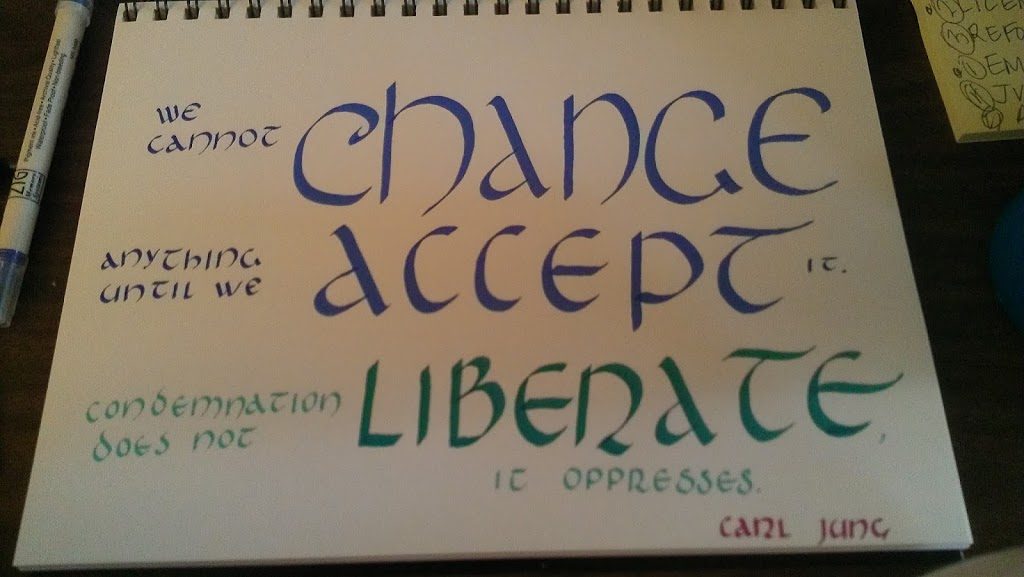 we
cannot
change
anything
until we
accept
it.
condemnation
does not
LIBERATE,
it oppresses.
CARL JUNG
ZIG
LICEN
3 REFO
EM
JV